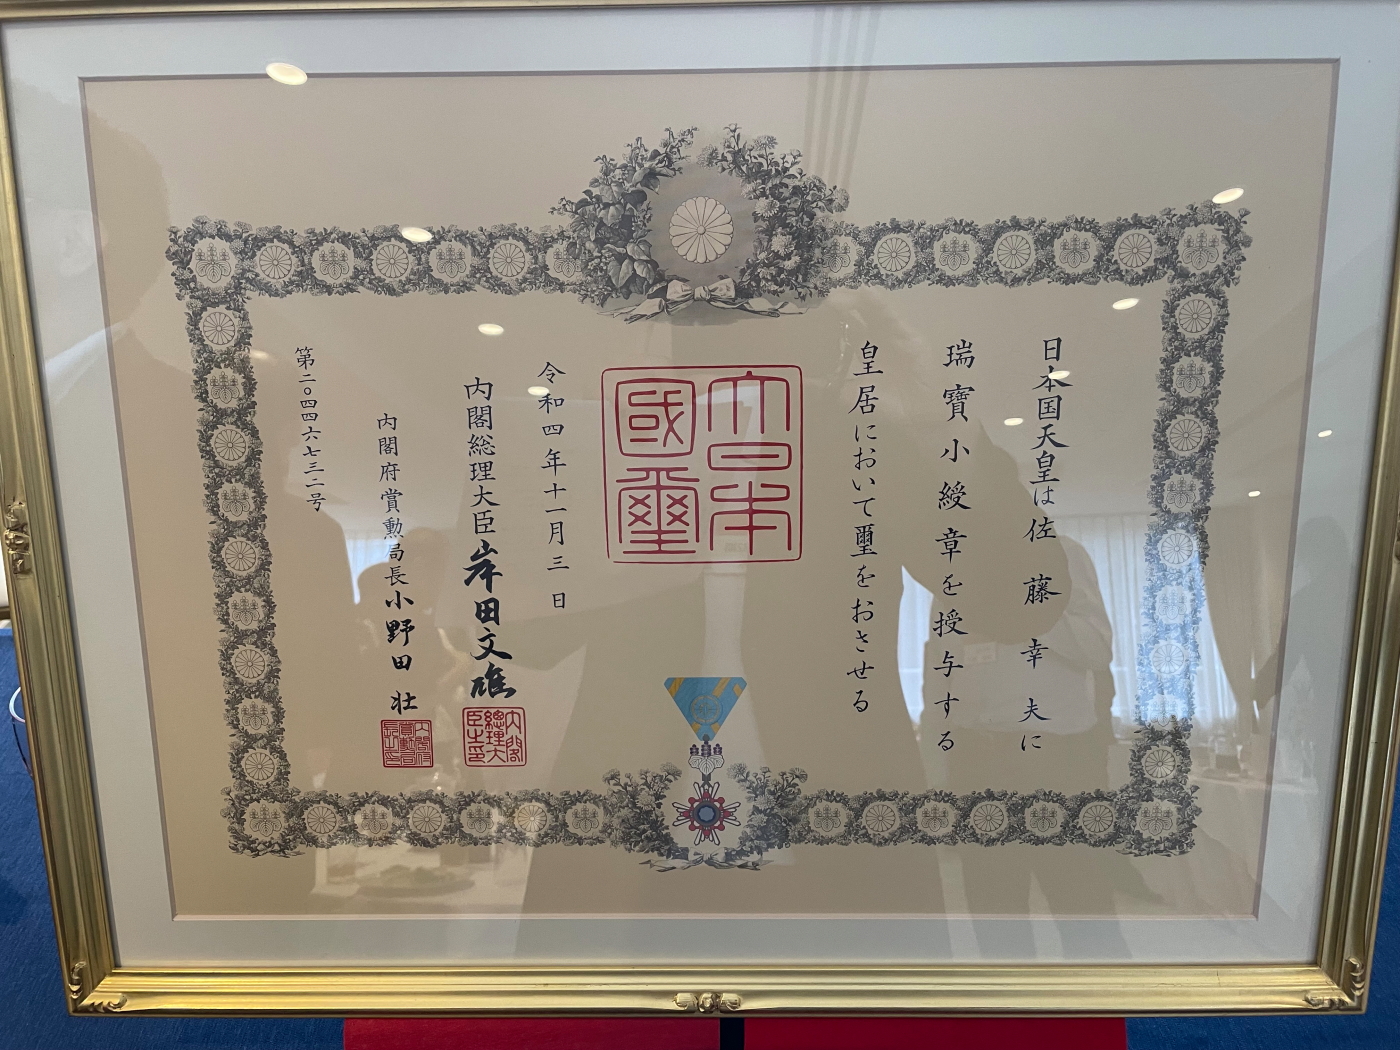 日本国天皇は佐藤幸夫に
瑞寶小綬章を授与する
皇居において璽をおさせる
大日本國璽
令和四年十一月三日
内閣総理大臣岸田文雄
内閣總理大臣之印
内閣府賞勲局長小野田壮
内閣府賞勲局長之印
第二〇四四六七三二号